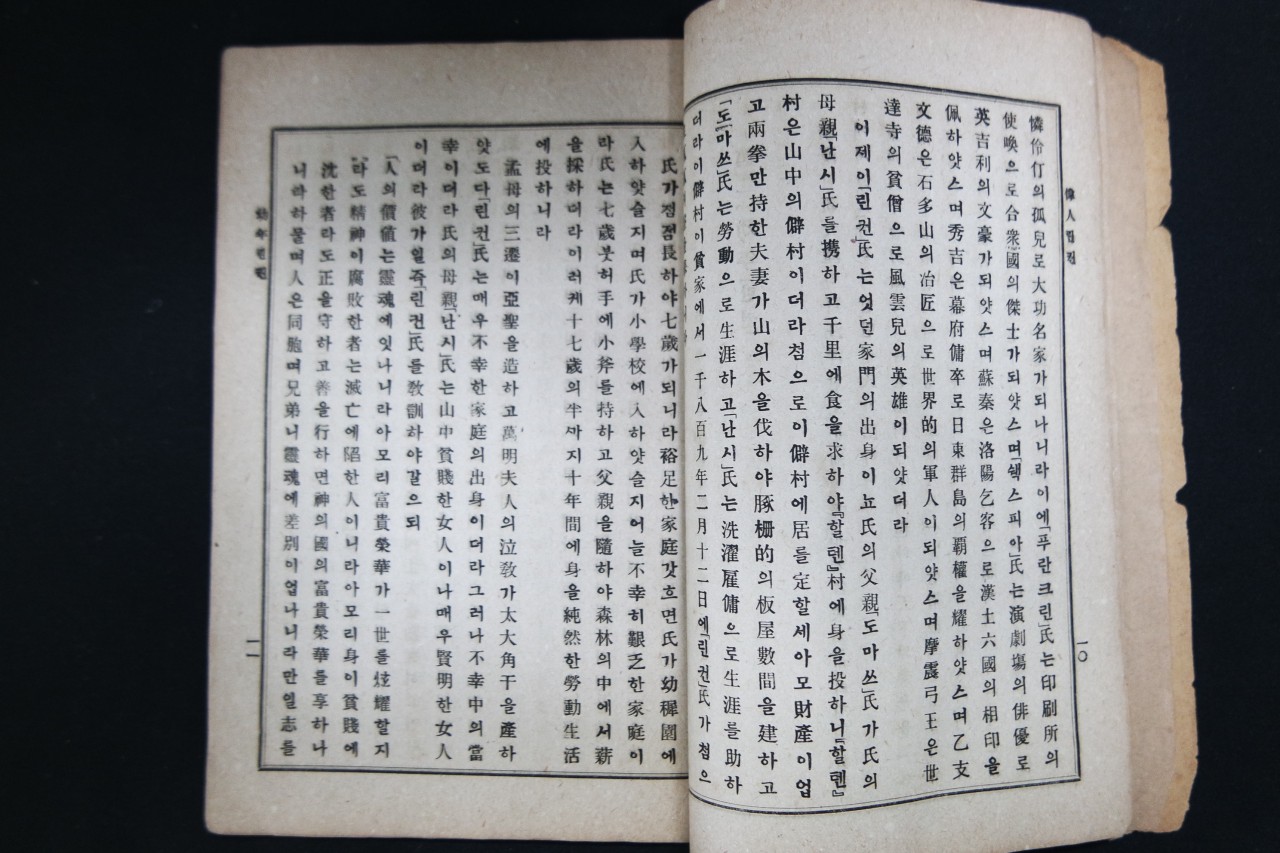 偉人린컨
憐伶仃의孤兒로大功名家가되나니라이에「푸란크린」氏는印刷所의
使喚으로合衆國의傑士가되얏스며「쉑스피아」氏는演劇塲의俳優로
英吉利의文豪가되얏스며蘇秦은洛陽乞客으로漢土六國의相印을
佩하얏스며秀吉은幕府傭卒로日東群島의覇權을耀하얏스며乙支
文德은石多山의冶匠으로世界的의軍人이되얏스며摩震弓王은世
達寺의貧僧으로風雲兒의英雄이되얏더라
이제이「린컨」氏는엇던家門의出身이뇨氏의父親「도마쓰」氏가氏의
母親「난시」氏를携하고千里에食을求하야『할텐』村에身을投하니『할텐』
村은山中의僻村이더라첨으로이僻村에居를定할세아모財產이업
고兩拳만持한夫妻가山의木을伐하야豚柵的의板屋數間을建하고
「도마쓰」氏는勞動으로生涯하고「난시」氏는洗濯雇傭으로生涯를助하
더라이僻村이貧家에서一千八百九年二月十二日에「린컨」氏가첨으
一〇
氏가점점長하야七歲가되니라裕足한家庭갓흐면氏가幼穉園에
入하얏슬지며氏가小學校에入하얏슬지어늘不幸히艱乏한家庭이
라氏는七歲붓허手에小斧를持하고父親을隨하야森林의中에서薪
을採하더라이러케十七歲의半까지十年間에身을純然한勞動生活
에投하니라
孟母의三遷이亞聖을造하고萬明夫人의泣敎가太大角干을產하
얏도다「린컨」氏는매우不幸한家庭의出身이더라그러나不幸中의當
幸이더라氏의母親「난시」氏는山中貧賤한女人이나매우賢明한女人
이더라彼가일즉「린컨」氏를敎訓하야갈으되
「人의價値는靈魂에잇나니라아모리富貴榮華가一世를炫耀할지
라도精神이腐敗한者는滅亡에陷한人이니라아모리身이貧賤에
沈한者라도正을守하고善을行하면神의國의富貴榮華를享하나
니라하물며人은同胞며兄弟니靈魂에差別이업나니라만일志를
幼年린컨
一一